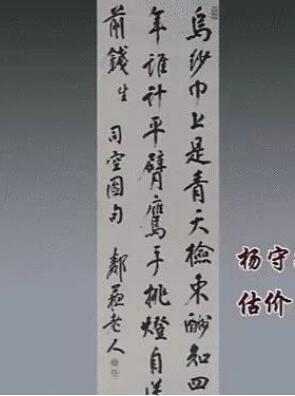 烏紗巾上是青天檢束酬知四
年誰計平臂鷹手挑燈自送
前錢生 司空圖句 鄰蘇老人
杨守
估价